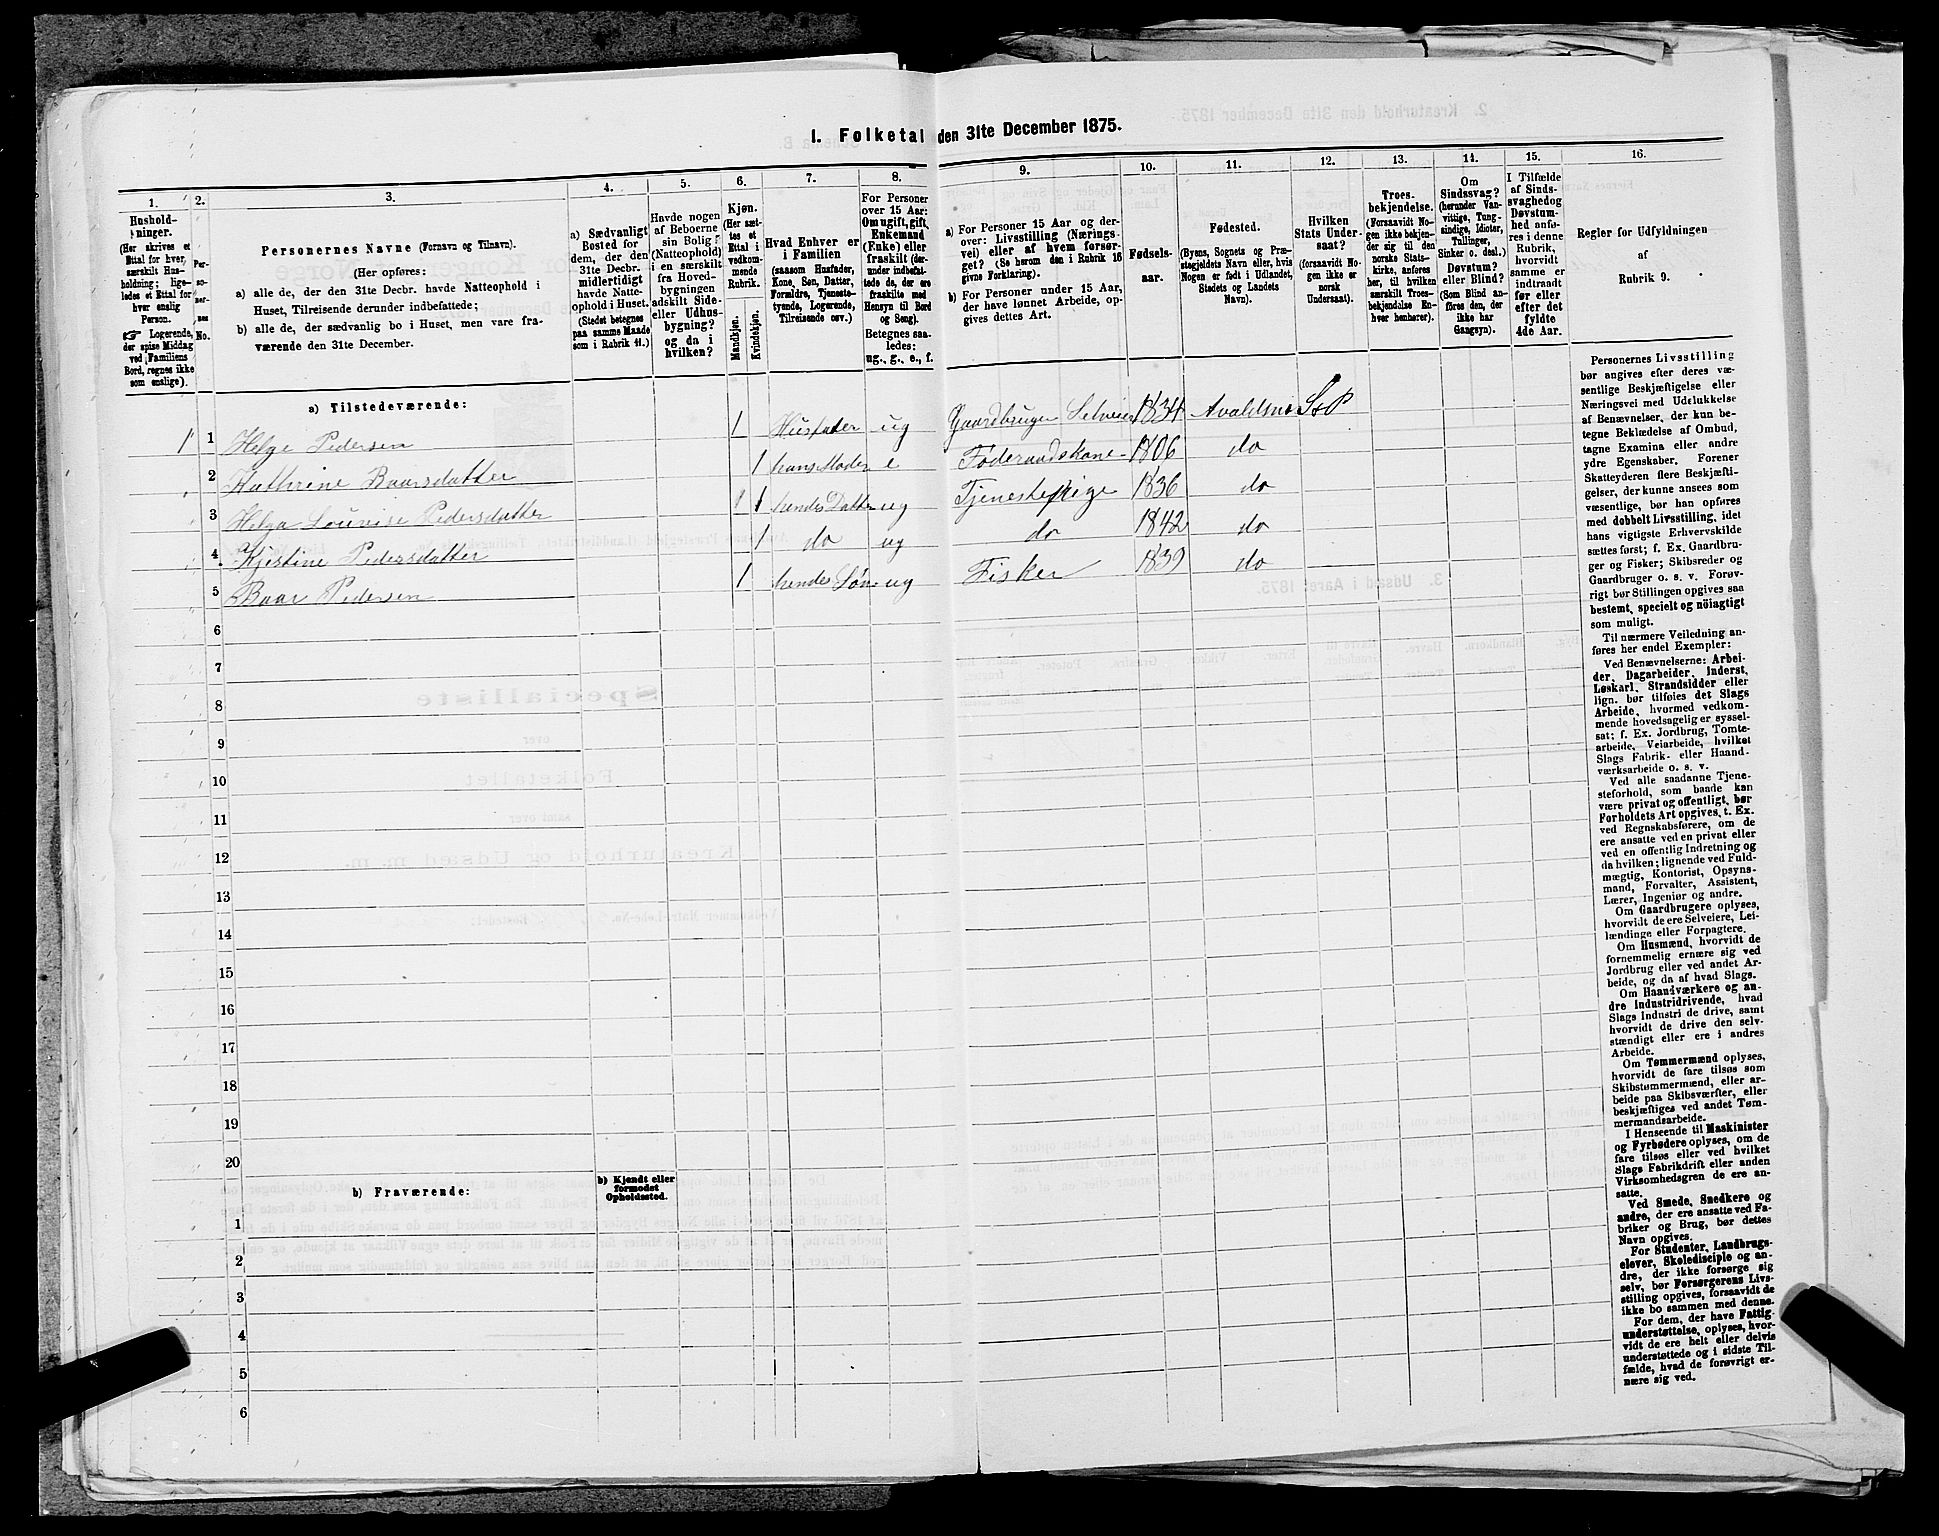 I. Folketal den 31te December 1875.
1.
2.
3.
4.
5.
6.
7.
8.
9.
10.
11.
12.
13.
14.
15.
16.
Hushold-
ninger.
(Her skrives et
Ettal for hver,
særskilt Hus-
holdning; lige-
ledes et Ettal for
hver enslig
Person.
☞ Logerende,
der spise Middag
ved Familiens
Bord, regnes ikke
som enslige).
Per-
so-
ner-
nes
No.
Personernes Navne (Fornavn og Tilnavn).
(Her opføres:
a) alle de, der den 31te Decbr. havde Natteophold i
Huset, Tilreisende derunder indbefattede;
b) alle de, der sædvanlig bo i Huset, men vare fra-
værende den 31te December.
a) Sædvanligt
Bosted for
dem, der den
31te Decbr.
midlertidigt
havde Natte-
ophold i Huset.
(Stedet betegnes
paa samme Maade
som i Rubrik 11.)
Havde nogen
af Beboerne
sin Bolig
(Natteophold)
i en særskilt
fra Hoved-
bygningen
adskilt Side-
eller Udhus-
bygning?
og da i
hvilken?
Kjøn.
(Her sæt-
tes et
Ettal i
vedkom-
mende
Rubrik.
Mandkjøn.
Kvindekjøn.
Hvad Enhver er
i Familien
(saasom Husfader,
Kone, Søn, Datter,
Forældre, Tjeneste-
tyende, Logerende,
Tilreisende osv.)
For Personer
over 15 Aar:
Om ugift, gift,
Enkemand
(Enke) eller
fraskilt (der-
under indbefat-
tede de, der ere
fraskilte med
Hensyn til Bord
og Seng).
Betegnes saa-
ledes:
ug., g., e., f.
a) For Personer 15 Aar og der-
over: Livsstilling (Nærings-
vei) eller af hvem forsør-
get? (Se herom den i Rubrik 16
givne Forklaring).
b) For Personer under 15 Aar,
der have lønnet Arbeide, op-
gives dettes Art.
Fødsels-
aar.
Fødested.
(Byens, Sognets og Præ-
stegjeldets Navn eller, hvis
Nogen er født i Udlandet,
Stedets og Landets
Navn).
Hvilken
Stats Under-
saat?
(forsaavidt No-
gen ikke er
norsk
Undersaat).
Troes-
bekjendelse.
(Forsaavidt No-
gen ikke bekjen-
der sig til den
norske Stats-
kirke, anføres
her, til hvilken
særskilt Troes-
bekjendelse En-
hver henhører).
Om
Sindssvag?
(herunder Van-
vittige, Tung-
sindige, Idioter,
Tullinger,
Sinker o. desl.)
Døvstum?
eller Blind?
(Som Blind an-
føres den, der
ikke har
Gangsyn).
I Tilfælde
af Sinds-
svaghed og
Døvstum-
hed anfø-
res i denne
Rubrik,
hvorvidt
samme er
indtraadt
før eller
efter det
fyldte
4de Aar.
Regler for Udfyldningen
af
Rubrik 9.
a) Tilstedeværende:
1 1 Helge Pedersen 1 Husfader ug Gaardbruger Selveier 1834 Avaldsnæs S & P
2 Kathrine Baarsdatter 1 hans Moder e Føderaadskone 1806 do
3 Helga Louvise Pedersdatter 1 1 hendes Datter ug Tjenestepige 1836 do
4 Kjestine Pedersdatter 1 do ug do 1842 do
5 Baar Pedersen 1 hendes Søn ug Fisker 1839 do
6
7
8
9
10
11
12
13
14
15
16
17
18
19
20
b) Fraværende:
b) Kjendt eller
formodet
Opholdssted.
1
2
3
4
5
6
Personernes Livsstilling
bør angives efter deres væ-
sentlige Beskjæftigelse eller
Næringsvei med Udelukkelse
af Benævnelser, der kun be-
tegne Beklædelse af Ombud,
tagne Examina eller andre
ydre Egenskaber. Forener
Skatteyderen flere Beskjæfti-
gelser, der kunne ansees som
væsentlige, bør han opføres
med dobbelt Livsstilling, idet
hans vigtigste Erhvervskilde
sættes først; f. Ex. Gaardbru-
ger og Fisker; Skibsreder og
Gaardbruger o. s. v. Forøv-
rigt bør Stillingen opgives saa
bestemt, specielt og nøiagtigt
som muligt.
Til nærmere Veiledning an-
føres her endel Exempler:
Ved Benævnelserne: Arbei-
der, Dagarbeider, Inderst,
Løskarl, Strandsidder eller
lign. bør tilføies det Slags
Arbeide, hvormed vedkom-
mende hovedsagelig er syssel-
sat; f. Ex. Jordbrug, Tomte-
arbeide, Veiarbeide, hvilket
Slags Fabrik- eller Haand-
værksarbeide o. s. v.
Ved alle saadanne Tjene-
steforhold, som baade kan
være privat og offentligt, bør
Forholdets Art opgives, t. Ex.
ved Regnskabsførere, om de
ere ansatte ved en privat eller
ved en offentlig Indretning og
da hvilken; lignende ved Fuld-
mægtig, Kontorist, Opsyns-
mand, Forvalter, Assistent,
Lærer, Ingeniør og andre.
Om Gaardbrugere oplyses,
hvorvidt de ere Selveiere, Lei-
lændinge eller Forpagtere.
Om Husmænd, hvorvidt de
fornemmelig ernære sig ved
Jordbrug eller ved andet Ar-
beide, og da af hvad Slags.
Om Haandværkere og an-
dre Industridrivende, hvad
Slags Industri de drive, samt
hvorvidt de drive den selv-
stændigt eller ere i andres
Arbeide.
Om Tømmermænd oplyses,
hvorvidt de fare tilsøs som
Skibstømmermænd, eller ar-
beide paa Skibsværfter, eller
beskjæftiges ved andet Tøm-
mermandsarbeide.
I Henseende til Maskinister
og Fyrbødere oplyses, om de
fare tilsøs eller ved hvilket
Slags Fabrikdrift eller anden
Virksomhedsgren de ere an-
satte.
Ved Smede, Snedkere og
andre, der ere ansatte ved Fa-
briker og Brug, bør dettes
Navn opgives.
For Studenter, Landbrugs-
elever, Skoledisciple og an-
dre, der ikke forsørge sig
selv, bør Forsørgerens Livs-
stilling opgives, forsaavidt de
ikke bo sammen med denne.
For dem, der have Fattig-
understøttelse, oplyses, hvor-
vidt de ere helt eller delvis
understøttede og i sidste Til-
fælde, hvad de forøvrigt er-
nære sig ved.